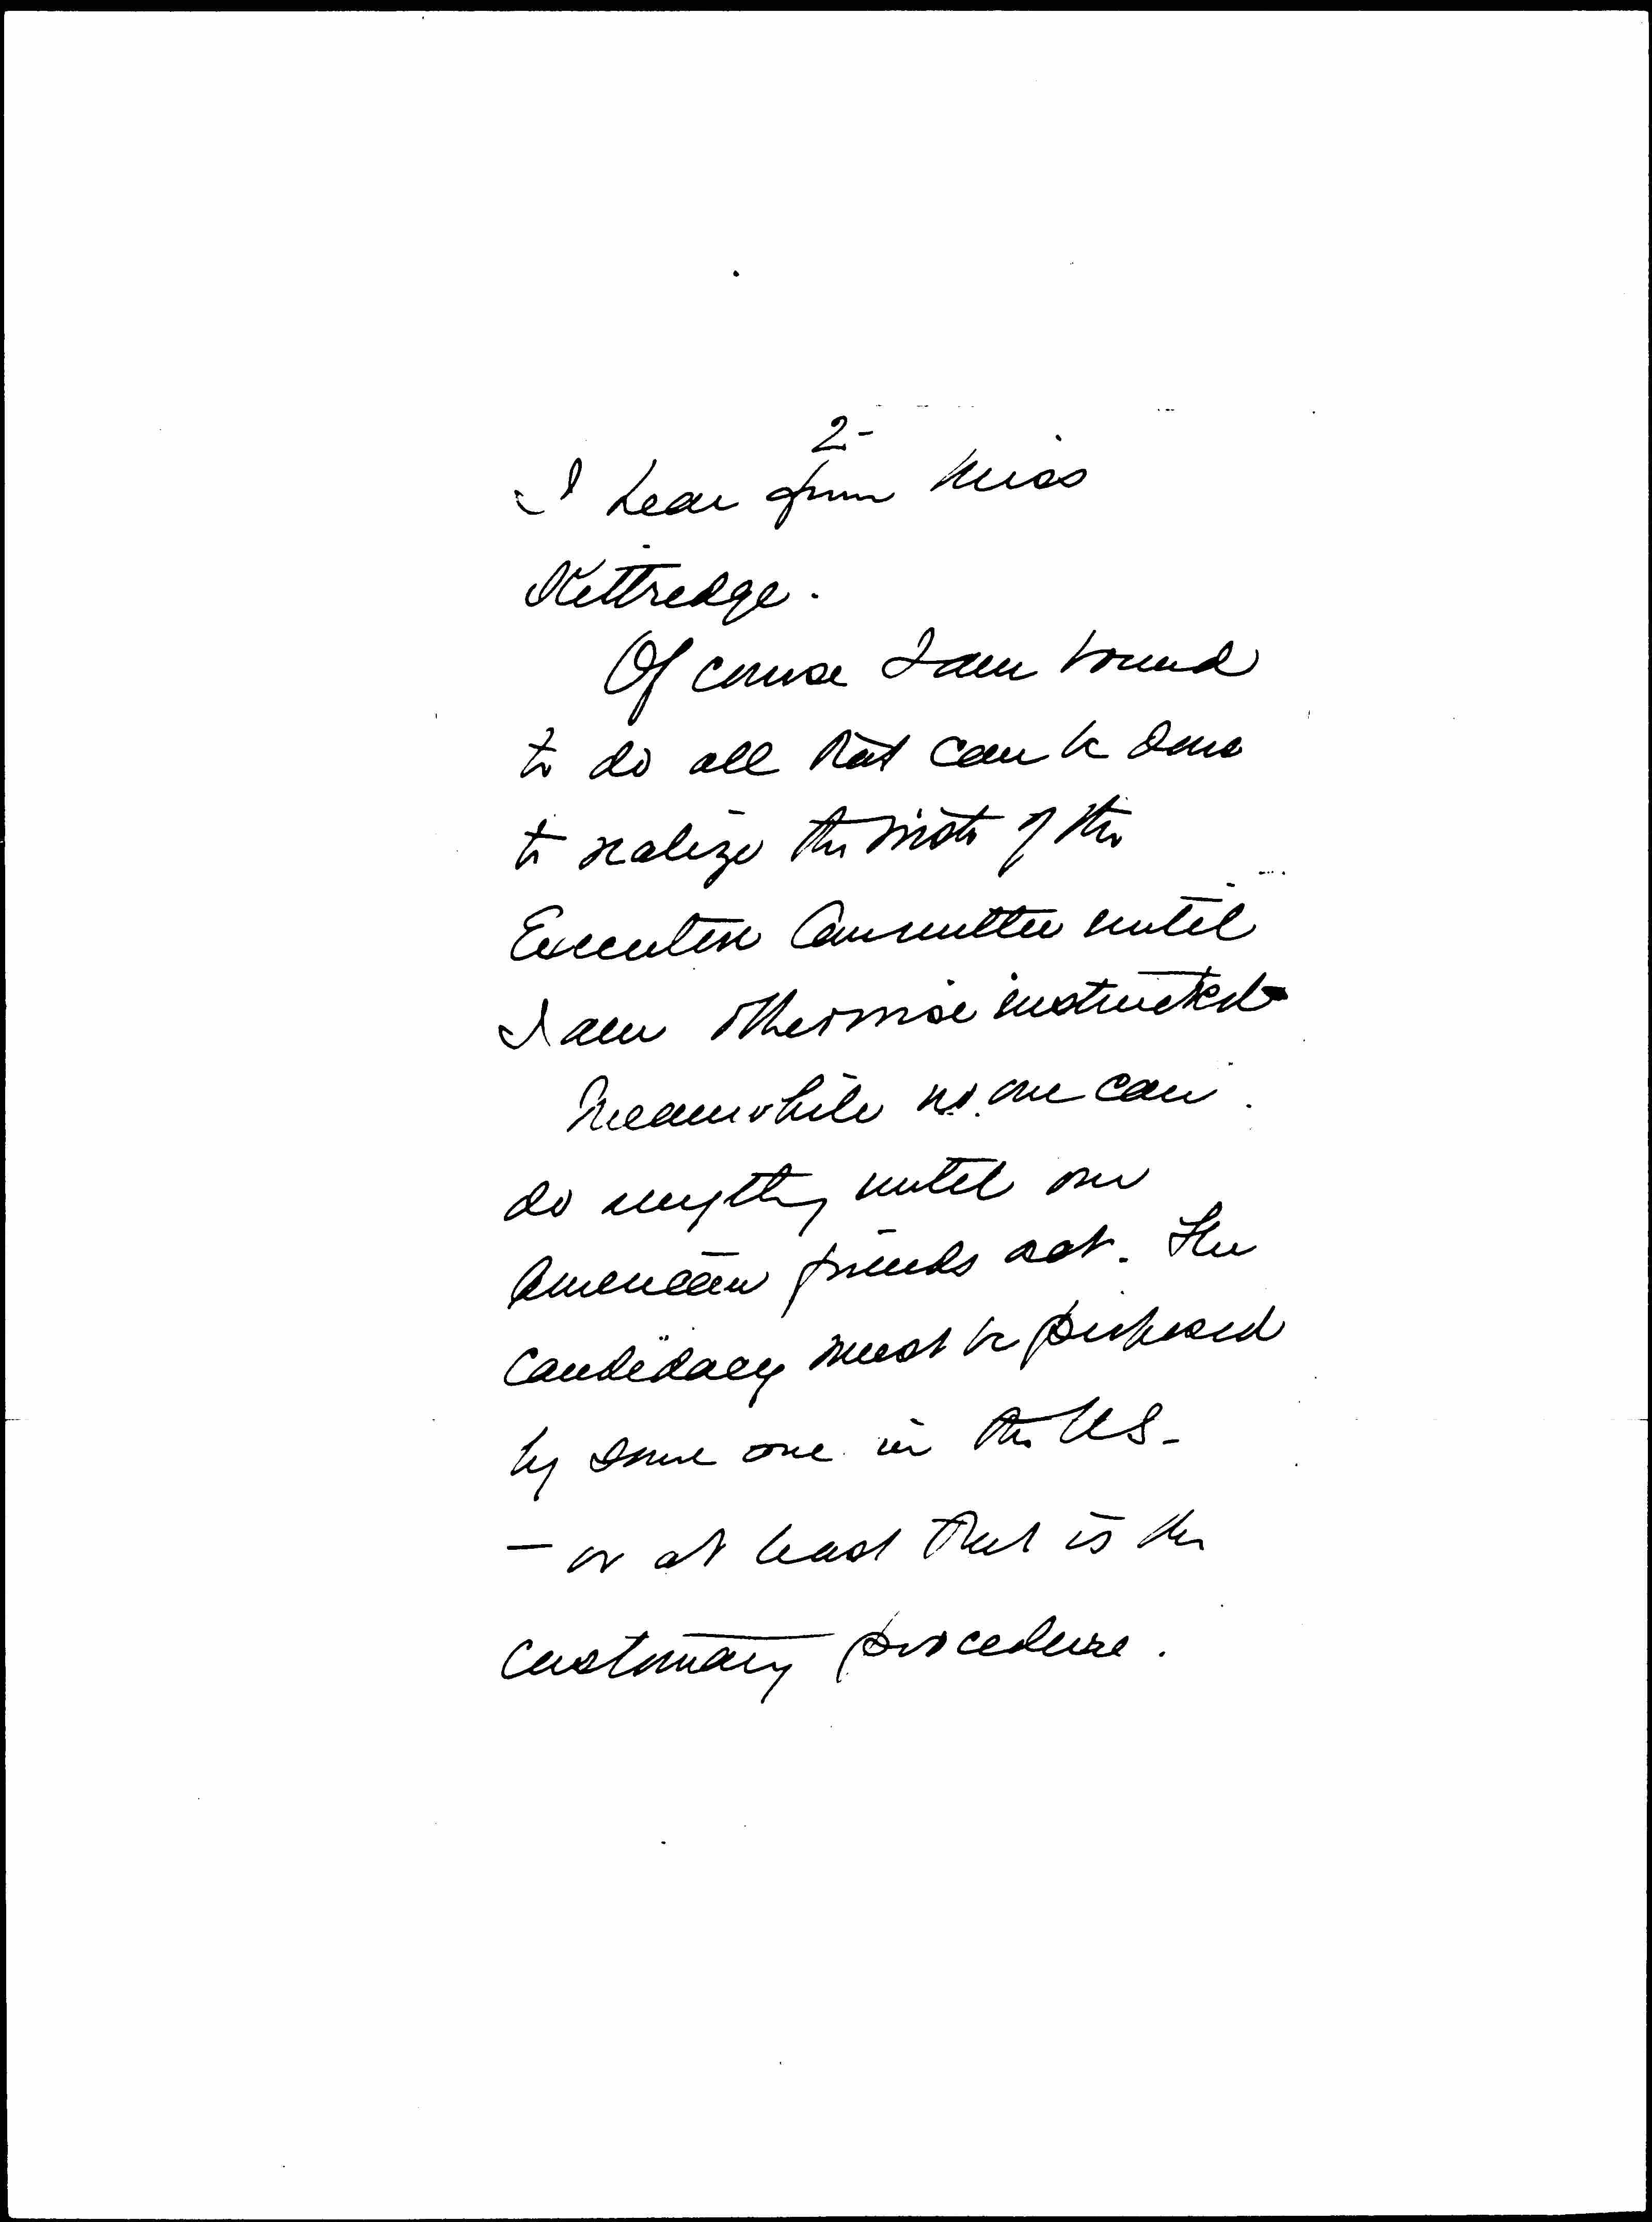 2-
I hear from Miss
Kittredge.
Of course I am bound
to do all that can be done
to realize the wish of the
Executive Committee until
I am otherwise instructed
Meanwhile no one can
do anything until our
American friends act. The
candidacy must be proposed
by some one in the US-
- or at least that is the
customary procedure.